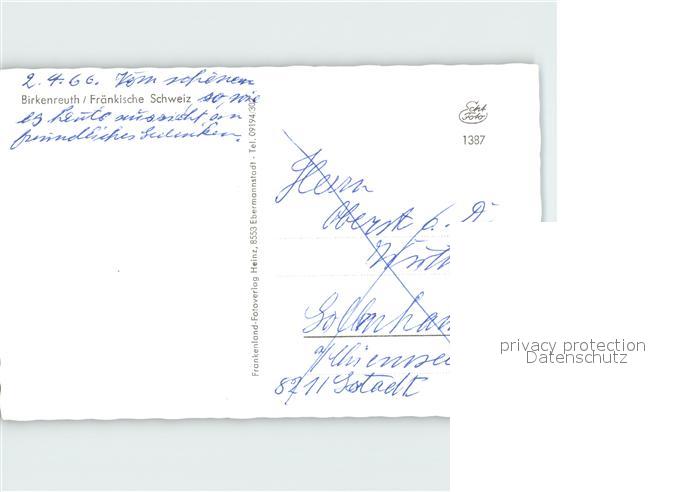 2.4.66. Vom schönen
Birkenreuth / Fränkische Schweiz so, wie
es heute aussieht, ein
freundliches Gedenken.
Echt
Foto
1387
Frankenland-Fotoverlag Heinz, 8553 Ebermannstadt - Tel. 09194-30
Herrn
Oberst
a/Chiemsee
8211 Gstadt
privacy protection
Datenschutz